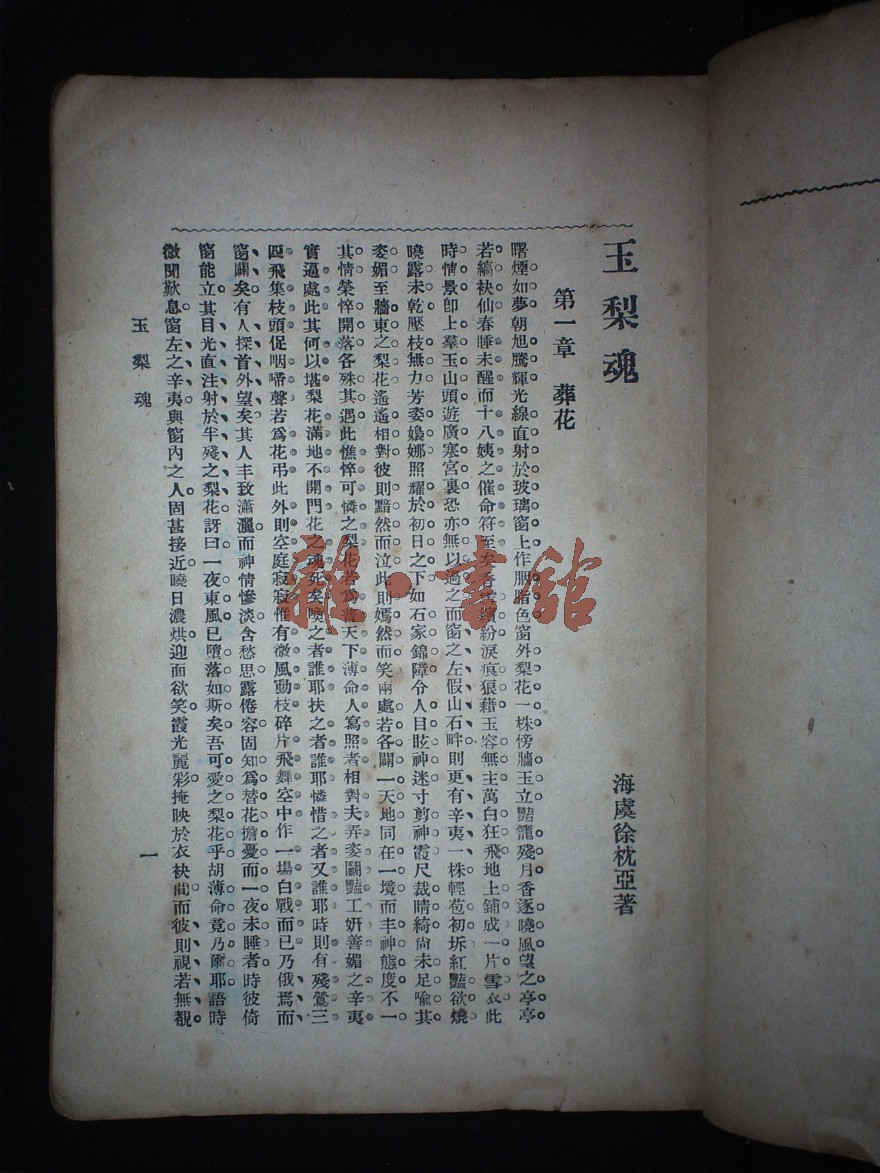 玉梨魂
海虞徐枕亞著
第一章 葬花
曙煙如夢朝旭騰輝光線直射於玻璃窗上作胭脂色窗外梨花一株傍牆玉立豔籠殘月香逐曉風望之亭亭
若縞袂仙春睡未醒而十八姨之催命符至矣香雪繽紛淚痕狼藉玉容無主萬白狂飛地上鋪成一片雪衣此
時情景卽上羣玉山頭遊廣寒宮裏恐亦無以過之而窗之左假山石畔則更有辛夷一株輕苞初坼紅豔欲燒
曉露未乾壓枝無力芳姿嬝娜照耀於初日之下如石家錦障令人目眩神迷寸剪神霞尺裁晴綺尙未足喻其
姿媚至牆東之梨花遙遙相對彼則黯然而泣此則嫣然而笑兩處若各闢一天地同在一境而丰神態度不一
其情榮悴開落各殊其遇此憔悴可憐之梨花若爲普天下薄命人寫照者相對夫弄姿鬭豔工妍善媚之辛夷
實逼處此其何以堪梨花滿地不開門花之魂死矣喚之者誰耶扶之者誰耶憐惜之者又誰耶時則有殘鶯三
四飛集枝頭促咽啼聲若爲花弔此外則空庭寂寂惟有微風動枝碎片飛舞空中作一場白戰而已乃俄焉而
窗闢矣有人探首外望矣其人丰致瀟灑而神情慘淡含愁思露倦容固知爲替花擔憂而一夜未睡者時彼倚
窗能立其目光直注射於半殘之梨花訝曰一夜東風已墮落如斯矣吾可愛之梨花乎胡薄命竟乃爾耶語時
微聞歎息窗左之辛夷與窗內之人固甚接近曉日濃烘迎面欲笑霞光麗彩掩映於衣袂間而彼則視若無覩
玉梨魂
一
雜·書舘